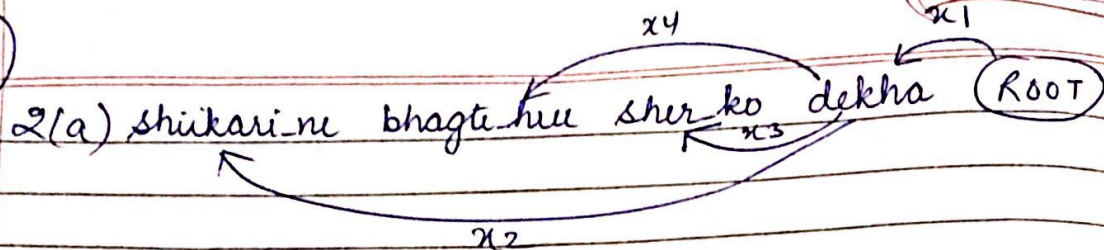 x4
x1
2(a) shiikari_ne bhagte_hue sher_ko dekha ROOT
x3
x2